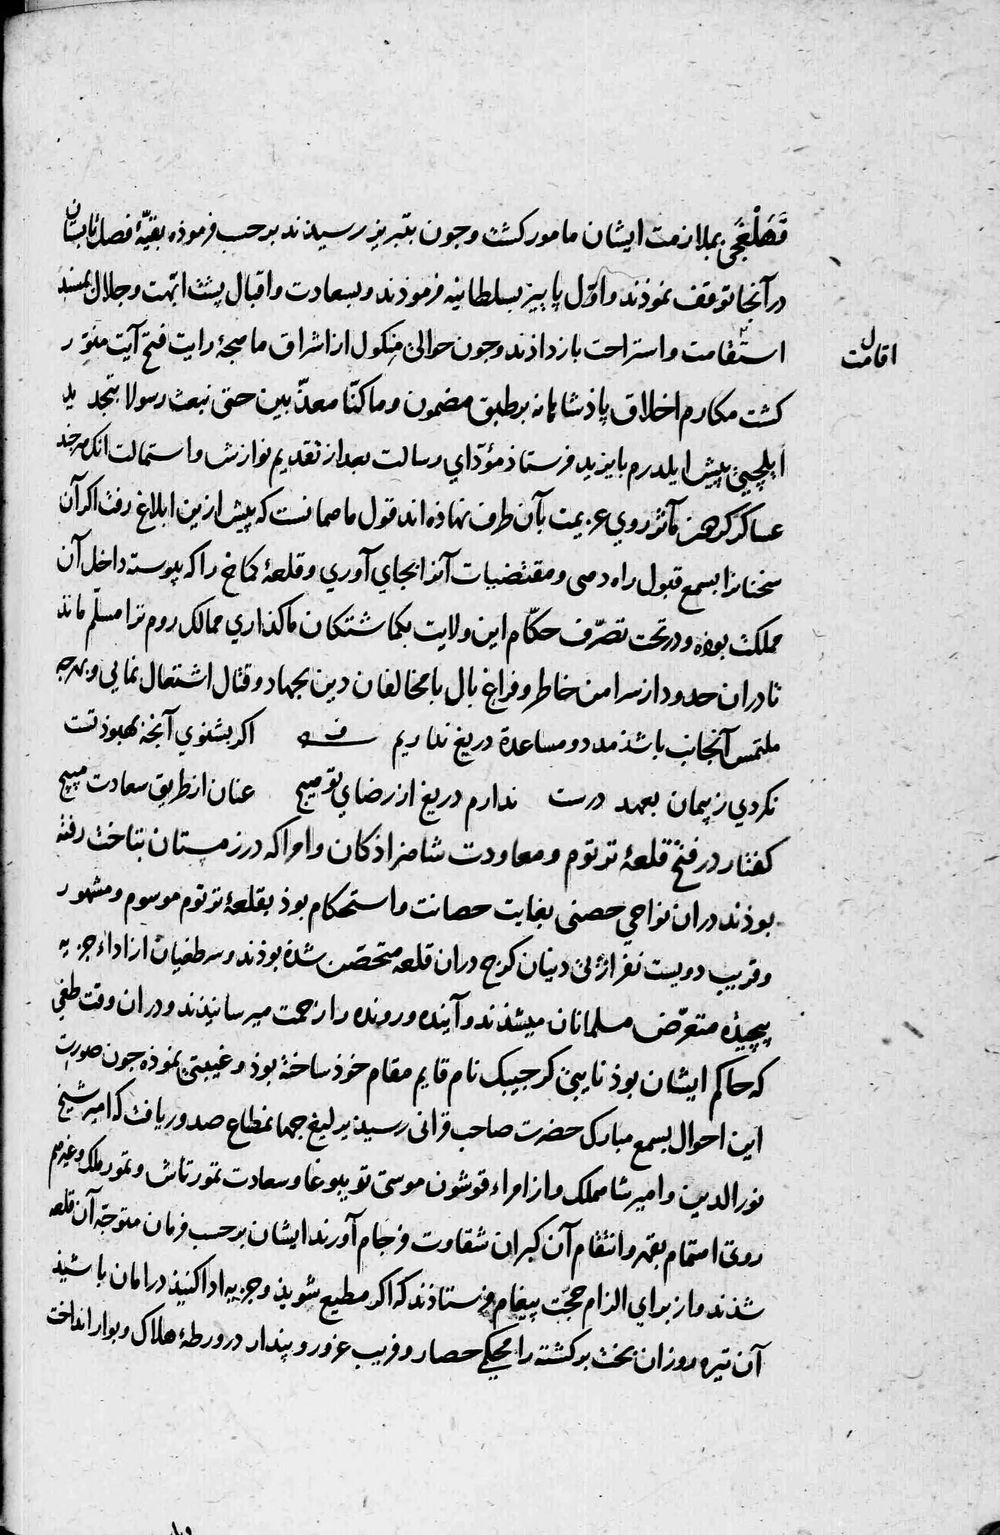 قَهَلْغَجی بملازمت ایشان مامور کشت وجون بتبریز رسیذند برحسب فرموذه بقیّهٔ فصل تابستان
درآنجا توقف نموذند و اوّل پاییز بسلطانیه فرموذند وبسعادت واقبال پشت ابّهت وجلال بمسند
استقامت واستراحت بازداذند وجون حوالئ منکول ازاشراق ماهجهٔ رایت فتح آیت منوّر
اقامت
کشت مکارم اخلاق پاذشاهانه برطبق مضمون وماکنّا معذّبین حتی نبعث رسولا بتجدید
ایلچیئ پیش ایلدرم بایزید فرستاذ مؤدّای رسالت بعد از تقدیم نوازش واستمالت انک هرچند
عساکر کردون مآثر روي عزیمت بآن طرف نهاذه اند قول ما همانست که پیش ازین ابلاغ رفت اکر آن
سخنانرا بسمع قبول راه دهی ومقتضیات آنرا بجاي آوري وقلعهٔ کماخ را که پیوسته داخل آن
مملکت بوده ودرتحت تصرّف حکّام این ولایت بکماشتکان ما کذاري ممالک روم ترا مسلّم ماند
تادران حدود ازسر امن خاطر وفراغ بال بامخالفان دین بجهاد وقتال اشتغال نمایی وبهرچه
ملتمس آنجانب باشذ مدد ومساعدة دریغ نداریم اکر بشنوي آنجه بهبوذ تست
نکردي ز پیمان بعهد درست ندارم دریغ از رضاي تو هیچ عنان ازطریق سعادت مپیچ
کفتار در فتح قلعهٔ ترتوم ومعاودت شاهزاذکان وامرا که درزمستان بتاخت رفته
بوذند دران نواحي حصنی بغایت حصانت واستحکام بوذ بقلعهٔ ترتوم موسوم ومشهور
وقریب دویست نفر ازبی دینان کرج دران قلعه متحصّن شدة بوذند وسر طغیان از اداء جزیه
پیچیذه متعرّض مسلمانان میشذند وآینده ورونده را زحمت میرسانیذند ودران وقت طغی
که حاکم ایشان بوذ نایبی کرجیبک نام قایم مقام خوذ ساخته بوذ وغیبتی نموذه جون صورت
این احوال بسمع مبارک حضرت صاحب قرانی رسیذ یرلیغ جهانمطاع صدور یافت که امیر شیخ
نورالدین وامیر شاهملک وازامراء قوشون موسی توی بوغا وسعادت تمورتاش وتمورملک وغیرهم
روی اهتمام بقهر وانتقام آن کبران شقاوت فرجام آورند ایشان برحسب فرمان متوجّه آن قلعه
شذند واز براي الزام حجّت پیغام فرستاذند که اکر مطیع شوید وجزیه ادا کنیذ درامان باشیذ
آن تیره روزان بخت برکشته را محکمی حصار وفریب غرور وپندار در ورطهٔ هلاک وبوار انداخت